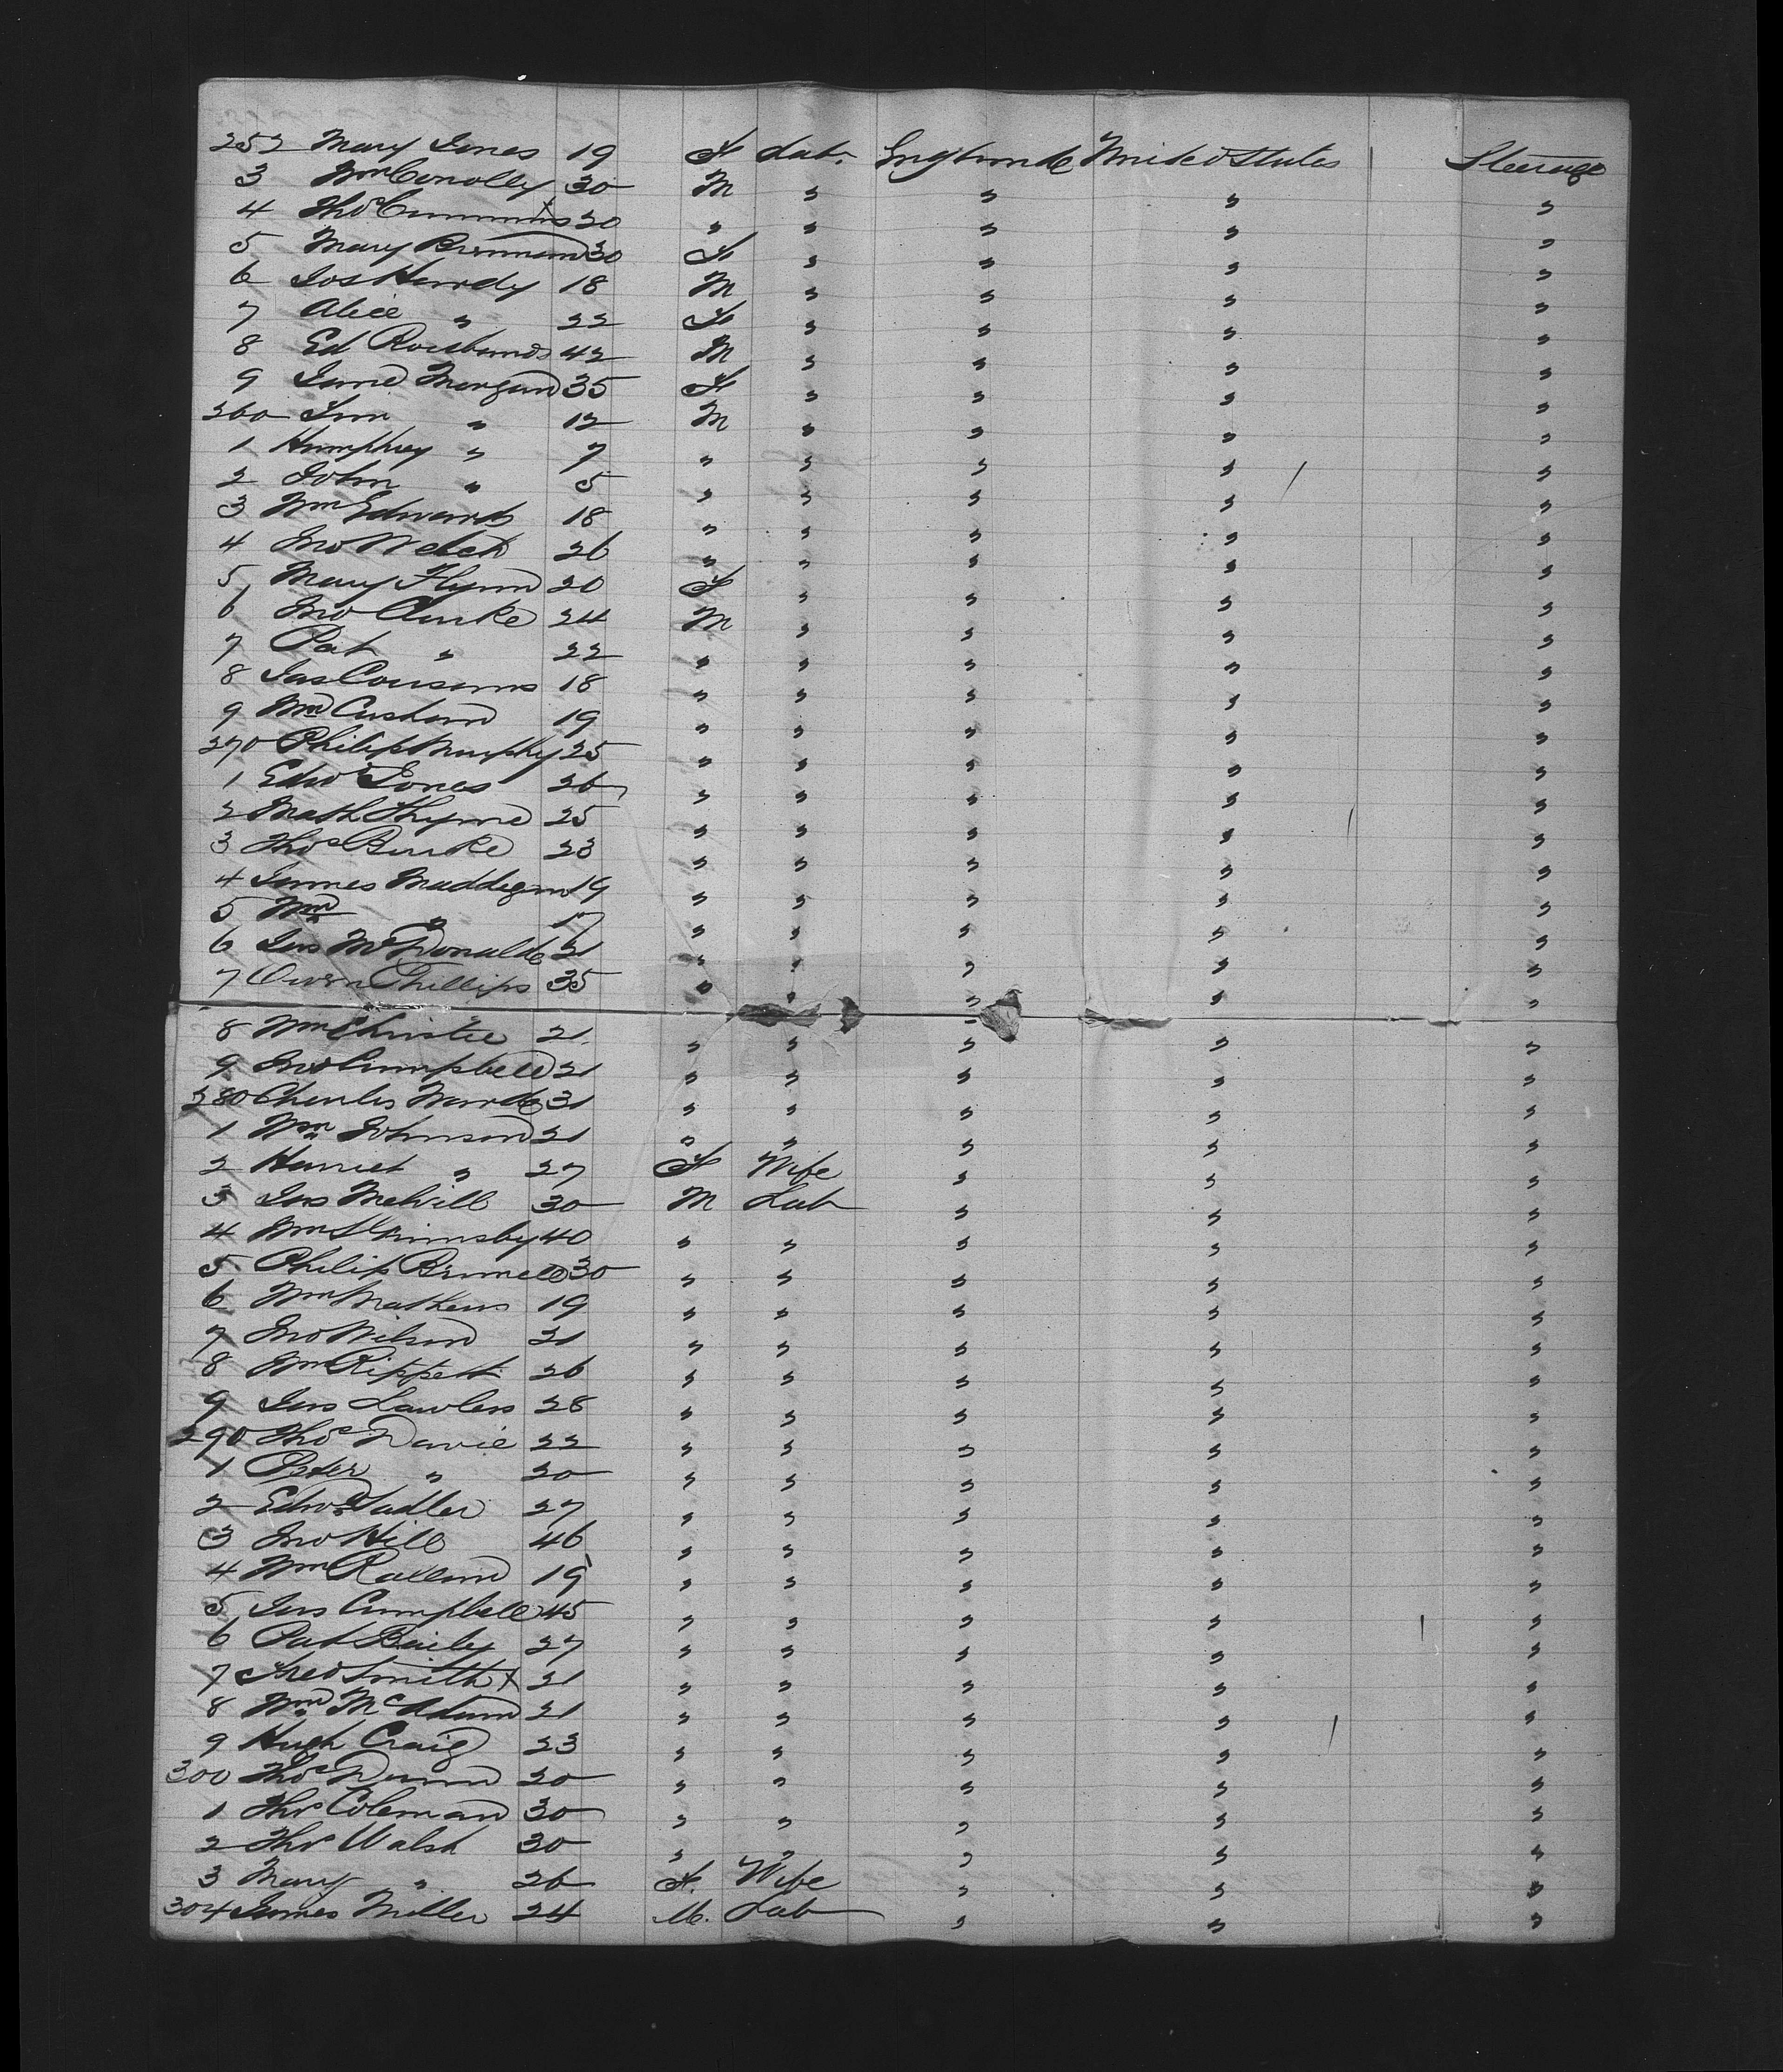 252 Mary Jones 19 F Lab. England United States Steerage
3 Wm Conolly 30 M " " " "
4 Thos Cummins 20 " " " " "
5 Mary Brennan 30 F " " " "
6 Jos Hardy 18 M " " " "
7 Alice " 22 F " " " "
8 Ed 42 M " " " "
9 Jane Morgan 35 F " " " "
260 Jno " 12 M " " " "
1 Humphrey " 7 " " " " "
2 John " 5 " " " " "
3 Wm Edwards 18 " " " " "
4 Jno Welch 26 " " " " "
5 Mary Flynn 20 F " " " "
6 Jno Clarke 24 M " " " "
7 Pat " 22 " " " " "
8 Jas Cousens 18 " " " " "
9 Wm Cushan 19 " " " " "
270 Philip Murphy 25 " " " " "
1 Edwd Jones 26 " " " " "
2 Math Thyne 25 " " " " "
3 Thos Burke 23 " " " " "
4 James Maddigan 19 " " " " "
5 Wm " 17 " " " " "
6 Jas McDonald 21 " " " " "
7 Owen Phillips 35 " " " " "
8 Wm Christie 21 " " " " "
9 Jno Campbell 21 " " " " "
280 Charles Ward 31 " " " " "
1 Wm Johnson 21 " " " " "
2 Harriet " 27 F Wife " " "
3 Jas Melvill 30 M Lab " " "
4 Wm 40 " " " " "
5 Philip 30 " " " " "
6 Wm Mathews 19 " " " " "
7 Jno Wilson 31 " " " " "
8 Wm Rippett 26 " " " " "
9 Jas Lawless 28 " " " " "
290 Thos Davie 22 " " " " "
1 Peter " 20 " " " " "
2 Edwd Sadler 27 " " " " "
3 Jno Hill 46 " " " " "
4 Wm 19 " " " " "
5 Jas Campbell 45 " " " " "
6 Pat Baily 27 " " " " "
7 Fred Smith X 21 " " " " "
8 Wm McAdam 21 " " " " "
9 Hugh Craig 23 " " " " "
300 Thos Dunn 20 " " " " "
1 Thos Coleman 30 " " " " "
2 Thos Walsh 30 " " " " "
3 Mary " 26 F. Wife " " "
304 James Miller 24 M. Lab " " "